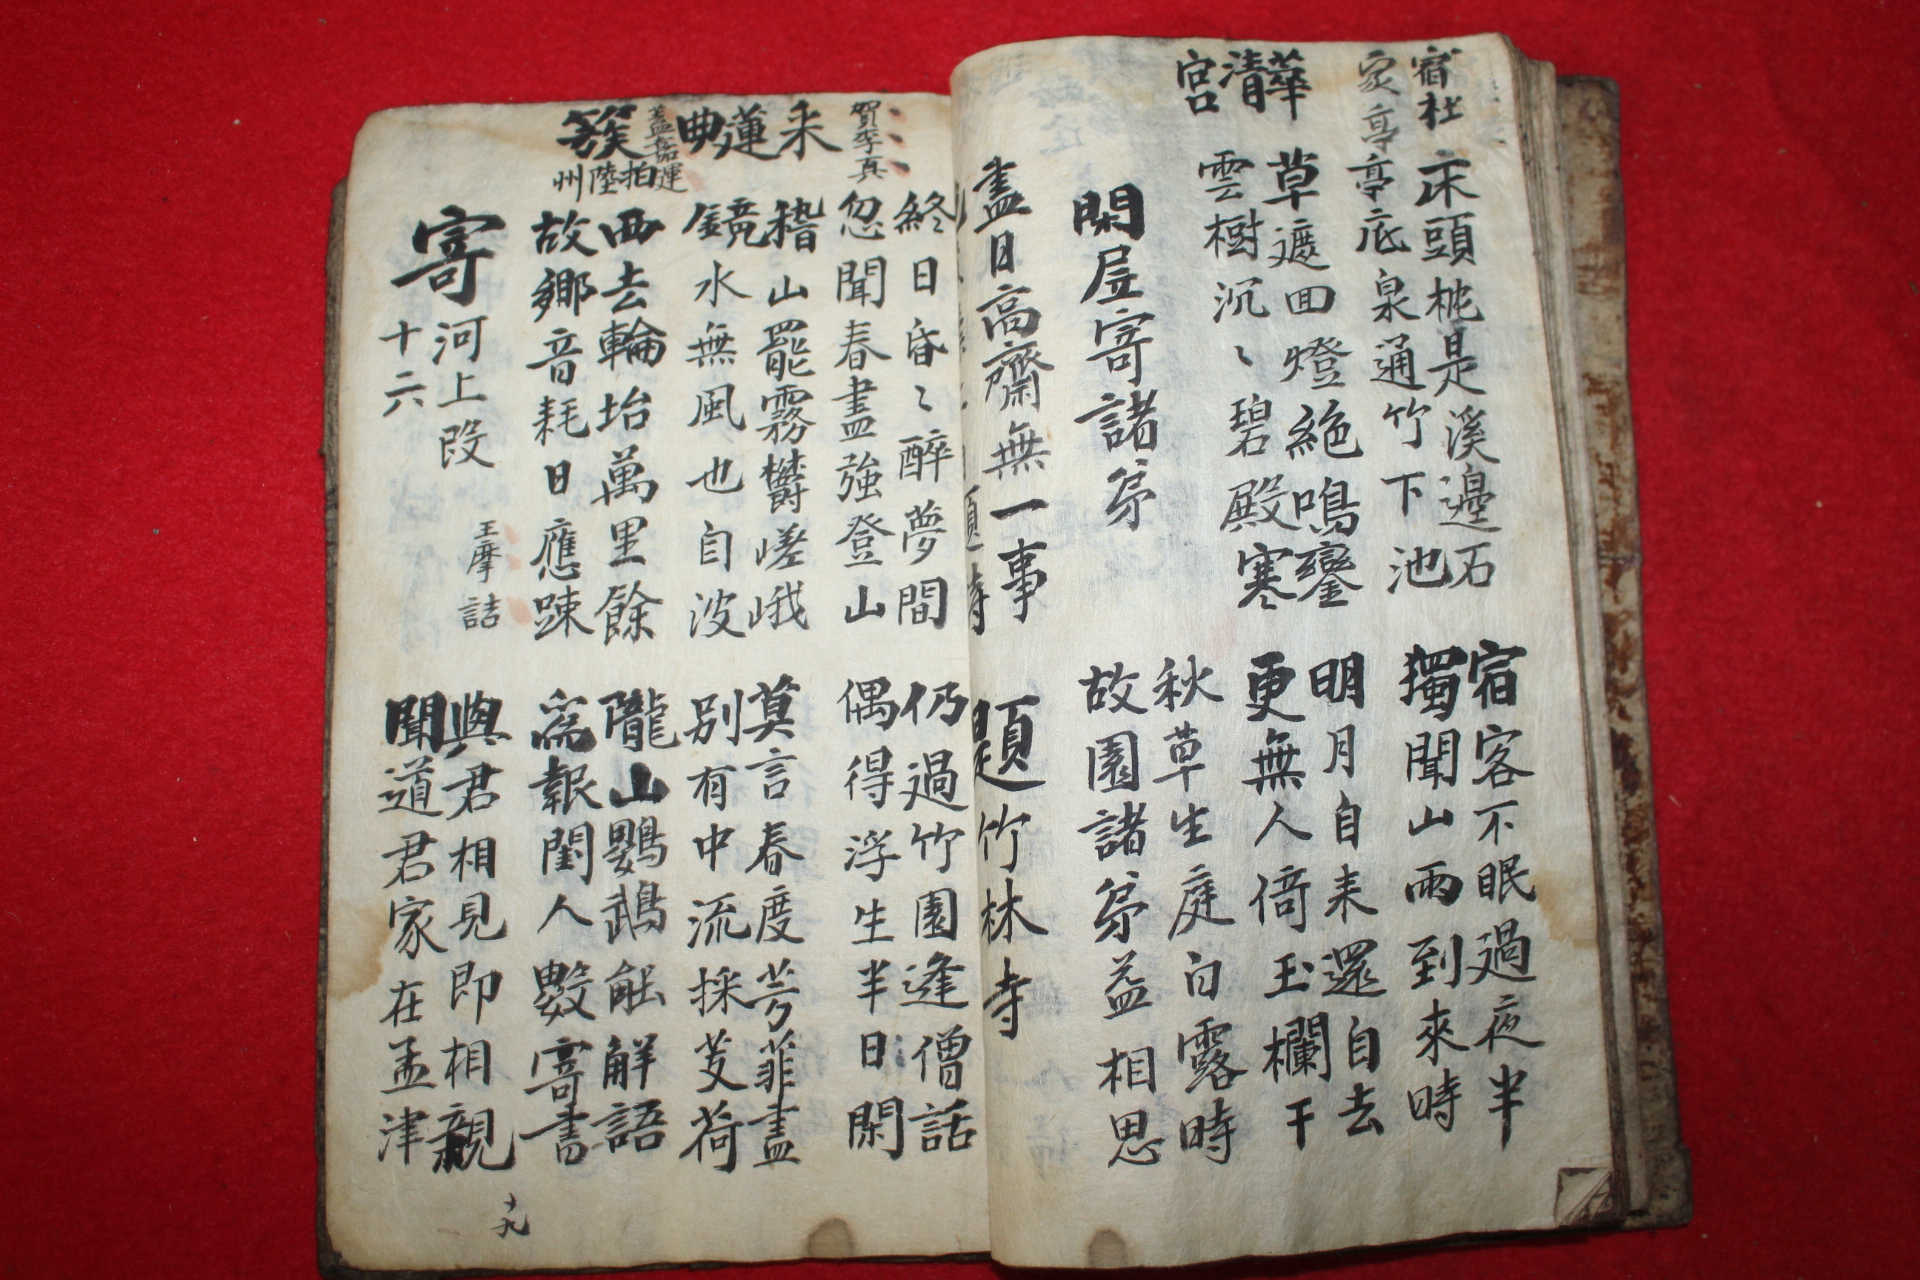 宿杜
家亭
床頭枕是溪邊石
宿客不眠過夜半
亭底泉通竹下池
獨聞山雨到來時
華清宮
草遮回燈絶鳴鑾
明月自来還自去
雲樹沉〻碧殿寒
更無人倚玉欄干
閑居寄諸弟
秋草生庭白露時
故園諸弟益相思
盡日高齋無一事
題竹林寺
終日昏〻醉夢間
仍過竹園逢僧話
忽聞春盡強登山
偶得浮生半日閑
賀季真
采蓮曲
稽山罷霧欝嵯峨
莫言春度芳菲盡
鏡水無風也自波
別有中流採芰荷
蓋嘉運
簇拍陸州
西去輪坮萬里餘
隴山鸚鵡能解語
故鄉音耗日應踈
爲報閨人數寄書
寄河上段十六
王摩詰
與君相見即相親
聞道君家在孟津
十九